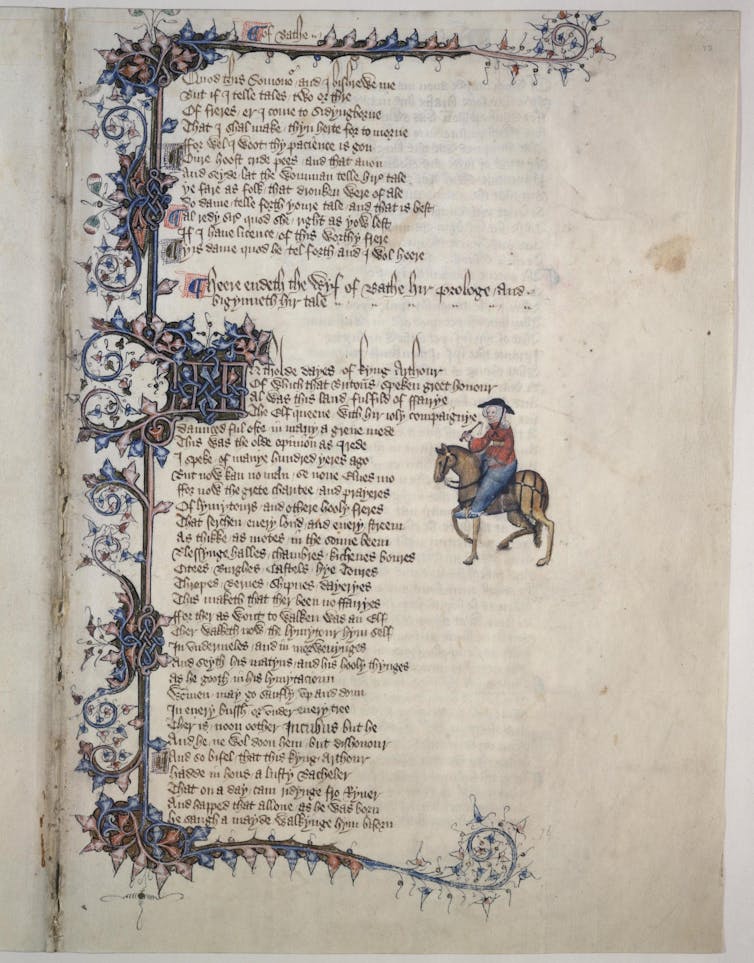 Of Bathe
Quod this Somonor and I bishrewe me
But if I telle tales two or thre
Of freres er I come to Sidyngborne
That I shal make thyn herte for to morne
ffor wel I woot thy pacience is gon
Oure hoost cride pees and that anon
And seyde lat the womman telle hire tale
ye fare as folk that dronken were of ale
Do dame telle forth youre tale and that is best
Al redy sire quod she right as yow lest
If I haue licence of this worthy frere
yis dame quod he tel forth and I wol heere
Heere endeth the Wyf of Bathe hir prologe and
bigynneth hir tale
IN tholde dayes of kyng Arthour
Of which that Britons speken greet honour
Al was this land fulfild of ffairye
The Elf queene with hir ioly compaignye
daunced ful ofte in many a grene mede
This was the olde opinion as I rede
I speke of manye hundred yeres ago
But now kan no man se none Elues mo
ffor now the grete charitee and prayeres
Of lymytours and othere hooly freres
That serchen euery lond and euery streem
As thikke as motes in the sonne beem
Blessynge halles chambres kichenes boures
Citees Burghes Castels hye Toures
Thropes Bernes Shipnes dayeryes
This maketh that ther been no ffairyes
ffor ther as wont to walken was an Elf
Ther walketh now the lymytour hym self
In vndermeles and in morwenynges
And seyth his matyns and his hooly thynges
As he gooth in his lymytacioun
Wommen may go saufly vp and doun
In euery bussh or vnder euery tree
Ther is noon oother Incubus but he
And he ne wol doon hem but dishonour
And so bifel that this kyng Arthour
hadde in hous a lusty Bacheler
That on a day cam ridynge fro Ryuer
And happed that allone as he was born
he saugh a mayde walkynge hym biforn